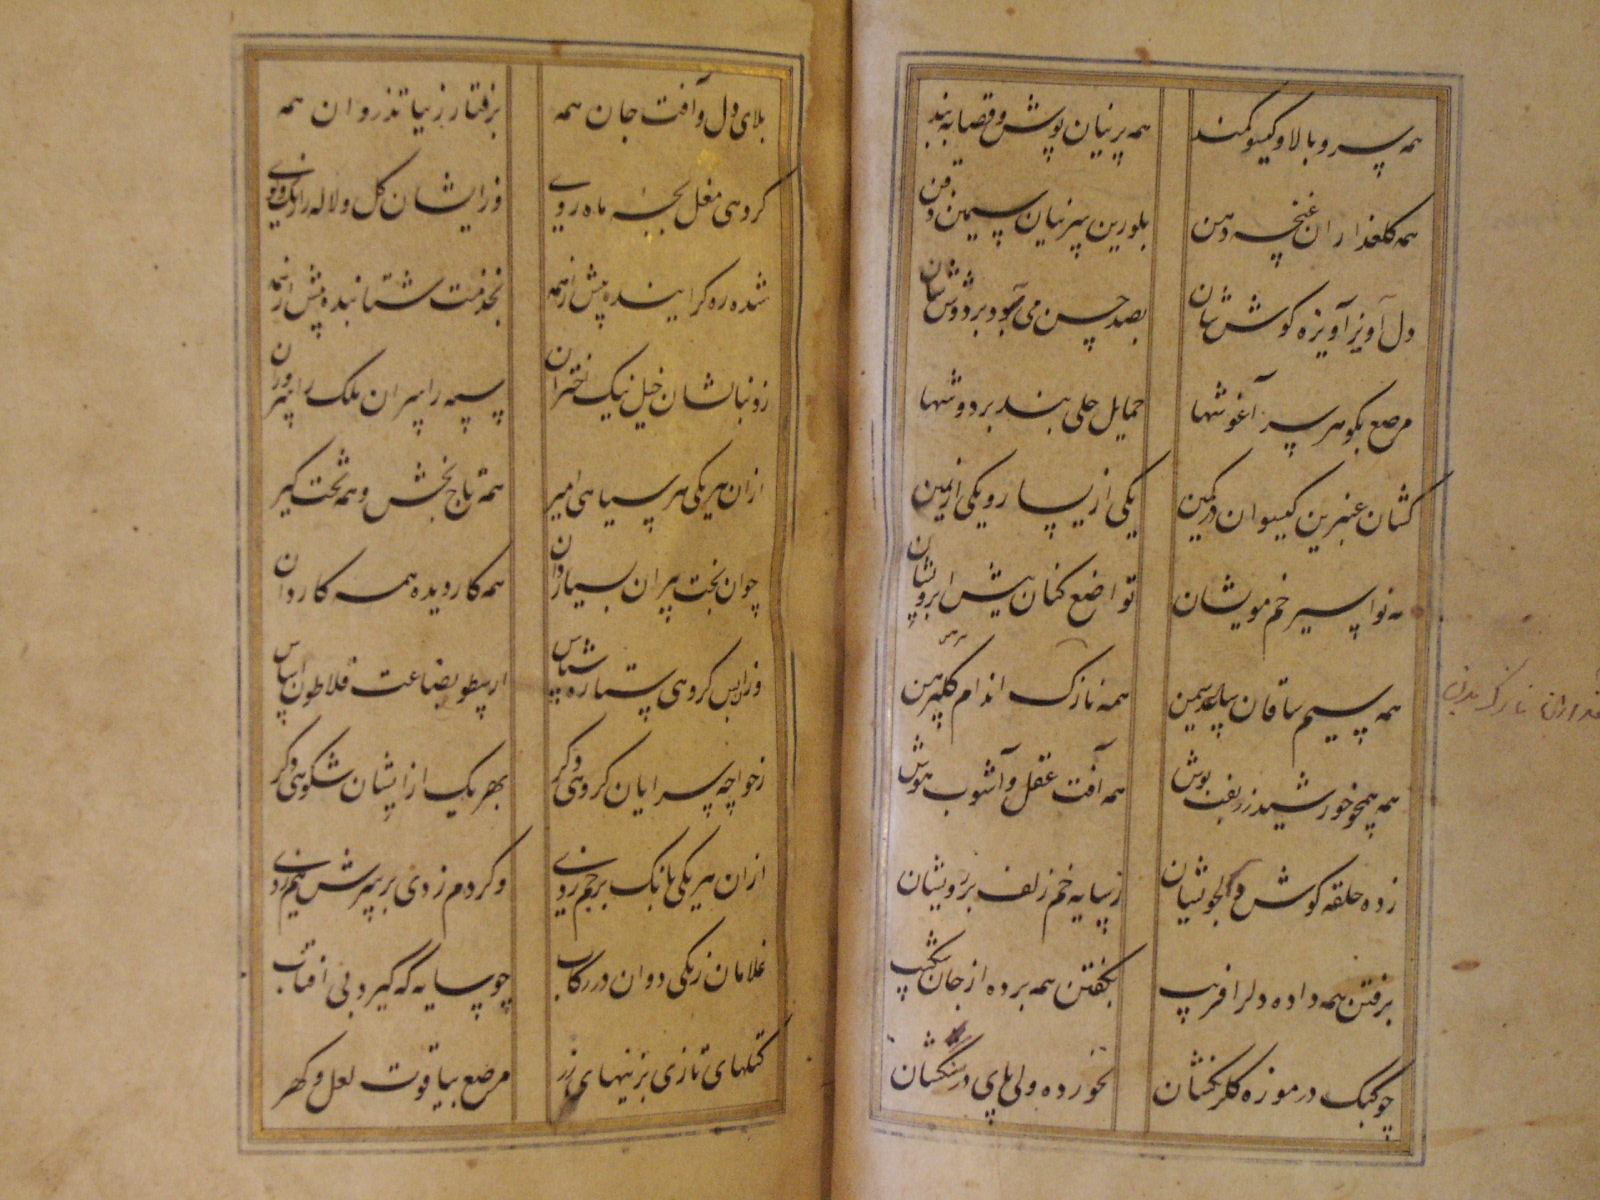 همه سرو بالا و گیسو کمند همه پرنیان پوش و قصابه بند
همه گلعذاران غنچه دهن بلورین سرنیان سیمین ذقن
دل آویز آویزه گوش شان بصد حسن می بود بر دوش شان
مرصع بگوهر سر آغوشها حمایل حلی بند بر دوشها
کشان عنبرین گیسوان در کمین یکی از یسار و یکی از یمین
اسیر خم مویشان تواضع کنان پیش ابرویشان
همه سیم ساقان همه نازک اندام گل پیرهن
همه همچو خورشید زربفت پوش همه آفت عقل و آشوب هوش
زده حلقه گوش زسایه خم زلف بر رویشان
برفتن همه داده دلرا فریب بگفتن همه برده از جان شکیب
چو کبک در موزه گلرنگشان نخورده ولی پای در سنگشان
نازک بدن
بلای دل و آفت جان همه برفتار زیبا تذروان همه
گروهی مغل بچه ماه روی وزایشان گل و لاله را رنگ و بوی
شده ره گراینده پیش از همه بخدمت شتابنده پیش از همه
ز دنبالشان خیل نیک اختران سپه را سران ملک را سروران
ازان هر یکی بر سپاهی امیر همه تاج بخش و همه تخت گیر
جوان بخت پیران بسیار دان همه کار دیده همه کاردان
وزان پس گروهی ستاره شناس ارسطو بضاعت فلاطون اساس
ز خواجه سرایان گروهی دگر بهر یک ازایشان شکوهی دگر
ازان هر یکی بانگ بر جم زدی وگر دم زدی بر سرش هم زدی
غلامان زنگی دوان در رکاب چو سایه که گیرد پی آفتاب
کتلهای تازی بزینهای زر مرصع بیاقوت لعل و گهر